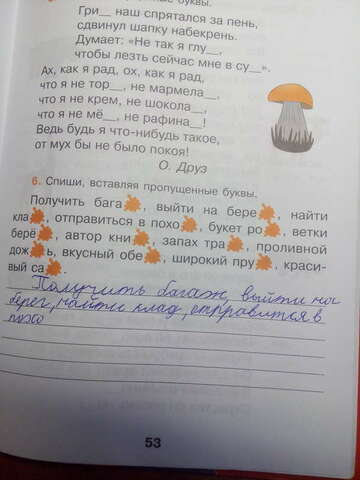 Гри__ наш спрятался за пень,
сдвинул шапку набекрень.
Думает: «Не так я глу__,
чтобы лезть сейчас мне в су__».
Ах, как я рад, ох, как я рад,
что я не тор__, не мармела__,
что я не крем, не шокола__,
что я не мё__, не рафина__!
Ведь будь я что-нибудь такое,
от мух бы не было покоя!
О. Друз
6. Спиши, вставляя пропущенные буквы.
Получить бага , выйти на бере , найти
кла , отправиться в похо , букет ро , ветки
берё , автор кни , запах тра , проливной
дож ь, вкусный обе , широкий пру , краси-
вый са .
Получить багаж, выйти на
берег, найти клад, отправится в
похо
53